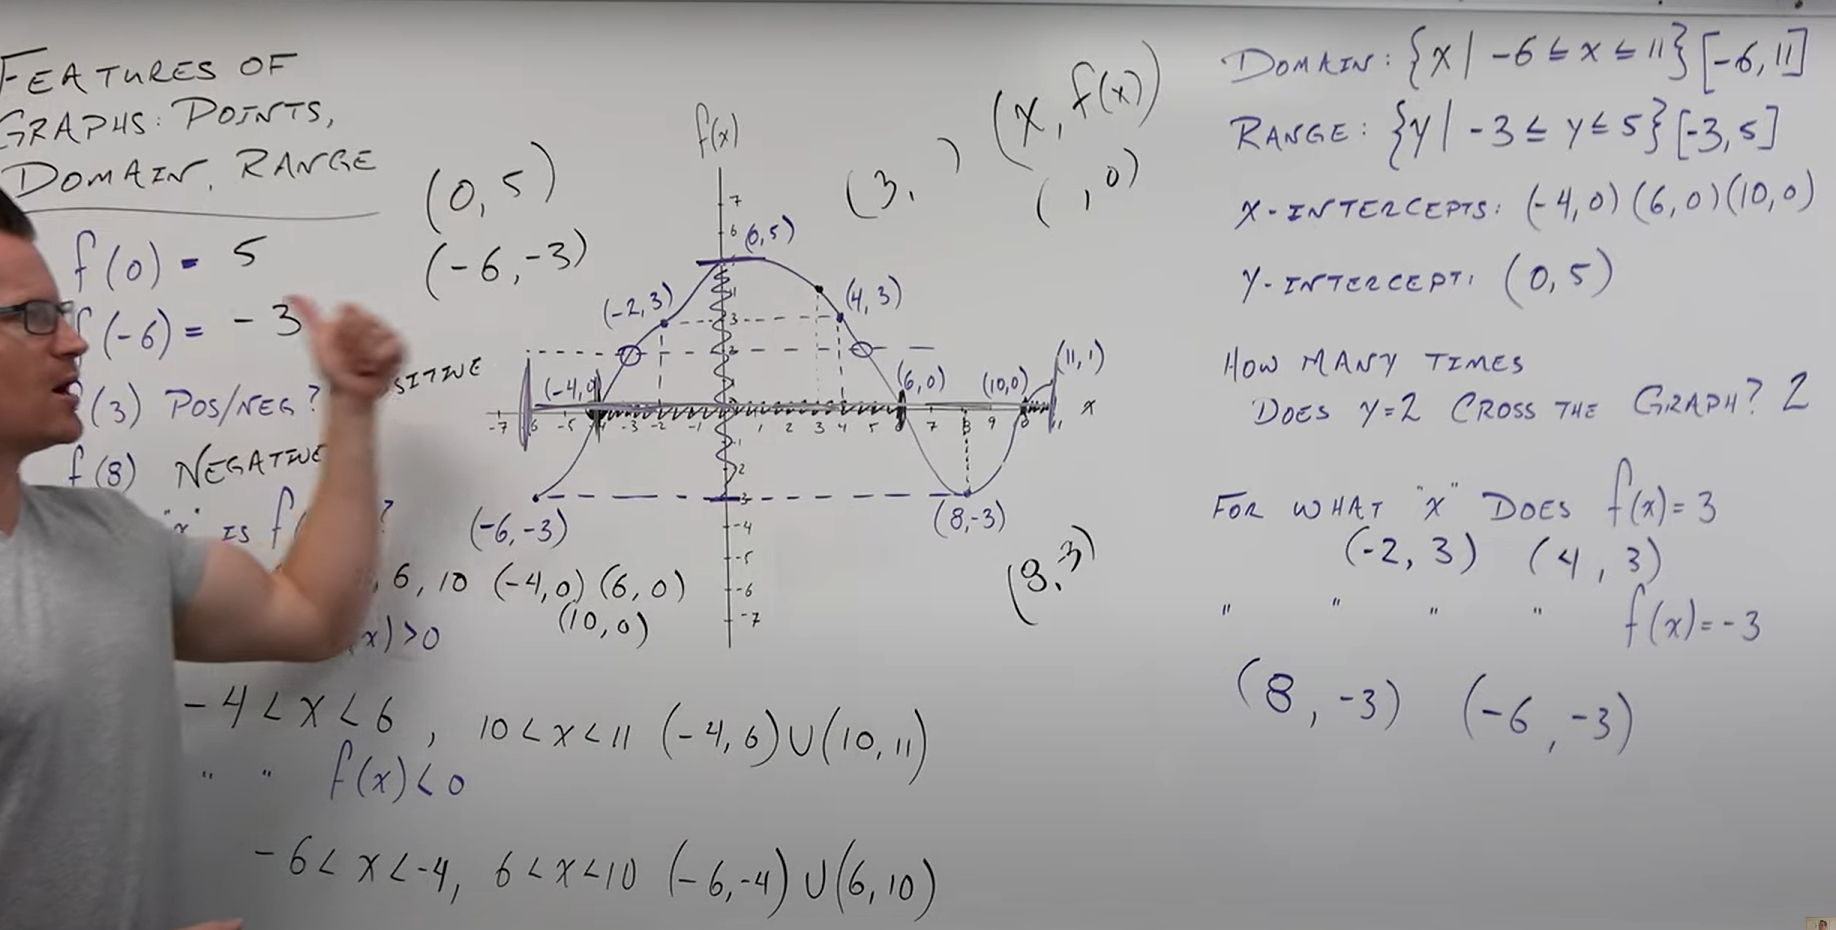 FEATURES OF
GRAPHS: POINTS,
DOMAIN, RANGE
f(0) = 5
f(-6) = -3
(3) POS/NEG? SITIVE
f(8) NEGATIVE
"x" IS f ?
, 6, 10 (-4,0) (6,0)
(10,0)
x)>0
-4<x<6, 10<x<11 (-4,6)∪(10,11)
" " f(x)<0
-6<x<-4, 6<x<10 (-6,-4)∪(6,10)
(0,5)
(-6,-3)
f(x)
(3, )
(x, f(x))
( ,0)
7
6
(0,5)
(-2,3)
3
(4,3)
2
(-4,0)
(6,0)
(10,0)
(11,1)
x
-7 6 -5 -3 -2 -1 1 2 3 4 5 6 7 8 9 11
-1
2
3
-4
-5
-6
-7
(-6,-3)
(8,-3)
(8,-3)
DOMAIN: {x| -6≤x≤11} [-6,11]
RANGE: {y| -3≤y≤5} [-3,5]
X-INTERCEPTS: (-4,0) (6,0) (10,0)
Y-INTERCEPT: (0,5)
HOW MANY TIMES
DOES Y=2 CROSS THE GRAPH? 2
FOR WHAT "X" DOES f(x)=3
(-2,3) (4,3)
" " " " f(x)=-3
(8,-3) (-6,-3)